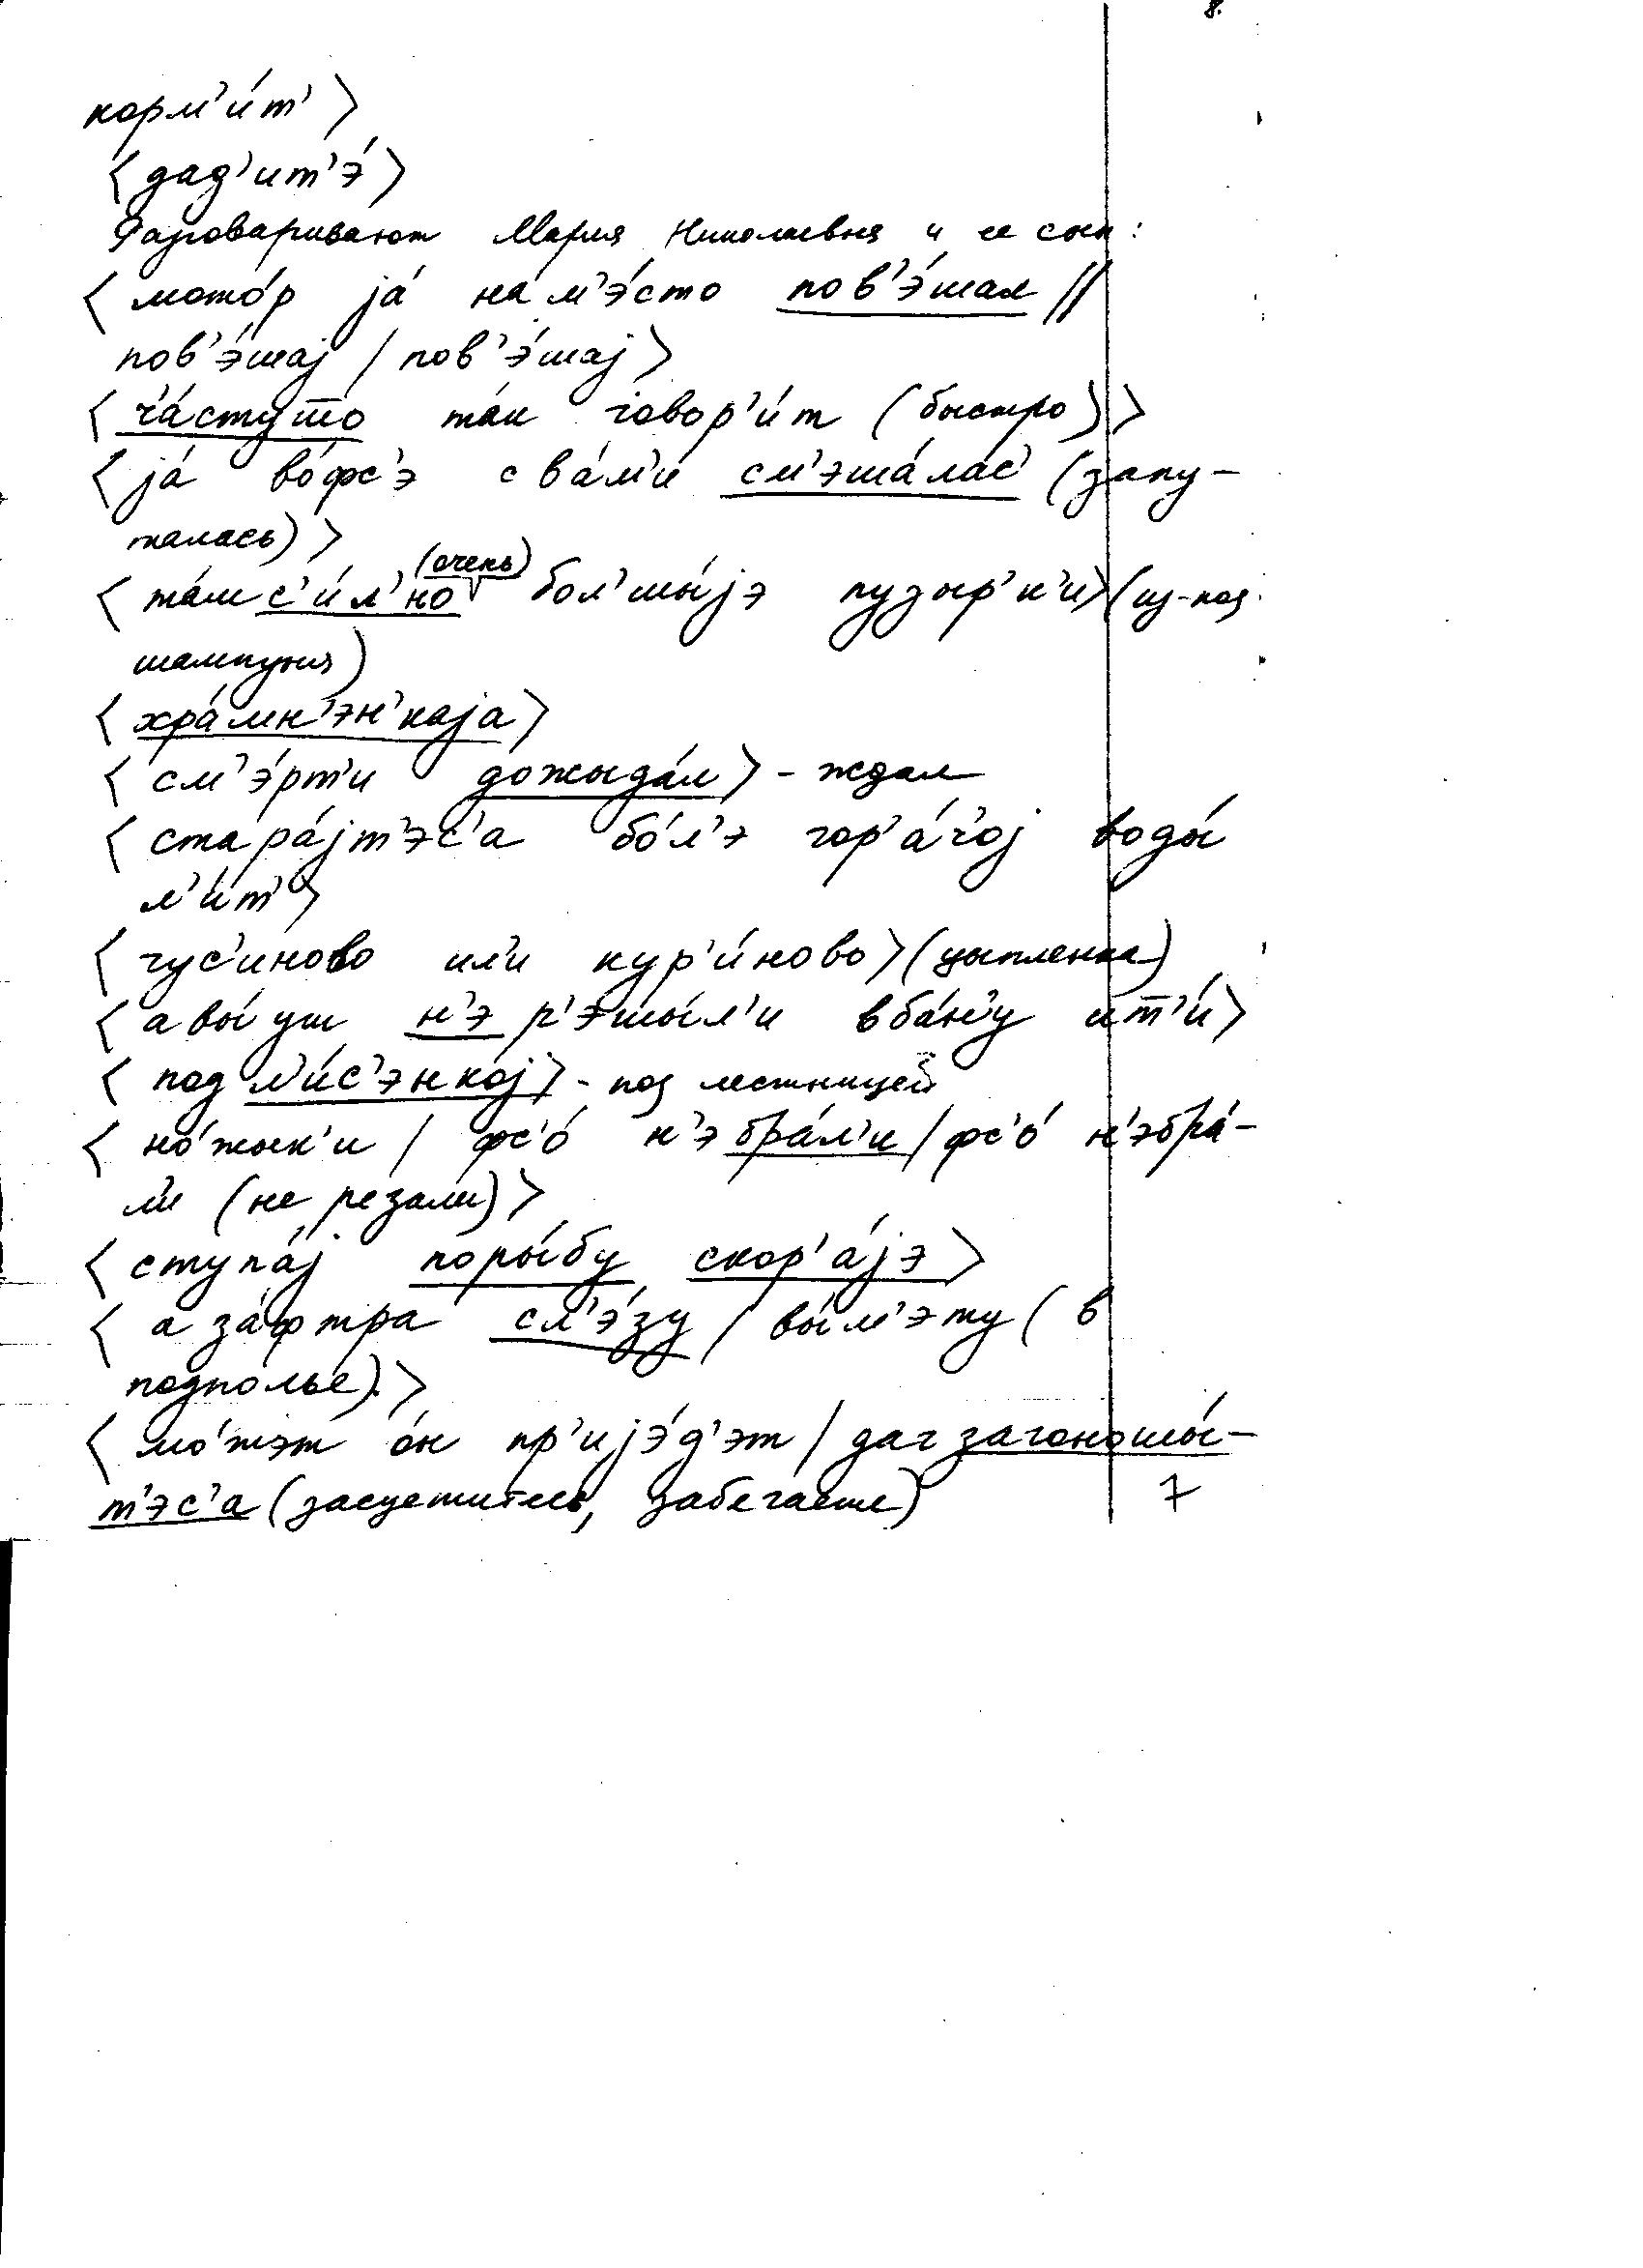 8.
корм'и́т' >
< дад'ит'э́ >
Разговаривают Мария Николаевна и ее сын:
< мото́р ja на́ м'э́сто пов'э́шал //
пов'э́шаj / пов'э́шаj >
< ча́стуто та́к говор'и́т (быстро) >
< ja во́фс'э с ва́м'и см'эша́лас' (запу-
талась) >
(очень)
< та́м с'и́л'но бол'шы́jэ пузыр'к'и > (из-под
шампуня)
< хра́мн'эн'каjа >
< см'э́рт'и дожыда́л > - ждал
< стара́jт'эс'а бо́л'э гор'а́ч'оj воды́
л'и́т' >
< гус'и́ново ил'и кур'и́ново > (цыпленка)
< а вы́ уш н'э р'эшы́л'и в ба́н'у ит'и́ >
< под л'и́с'энкоj > - под лестницей
< но́жык'и / фс'о́ н'э бра́л'и / фс'о́ н'эбра́-
л'и (не резали) >
< ступа́j поры́бу скор'а́jэ >
< а за́фтра сл'э́зу / вы́м'эту ( в
подполье). >
< мо́жэт о́н пр'иjэ́д'эт / даг загоношы́-
т'эс'а (засуетитесь, забегаете)
7